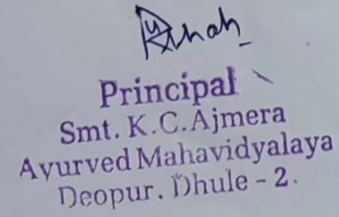 Principal
Smt. K.C.Ajmera
Ayurved Mahavidyalaya
Deopur. Dhule - 2.